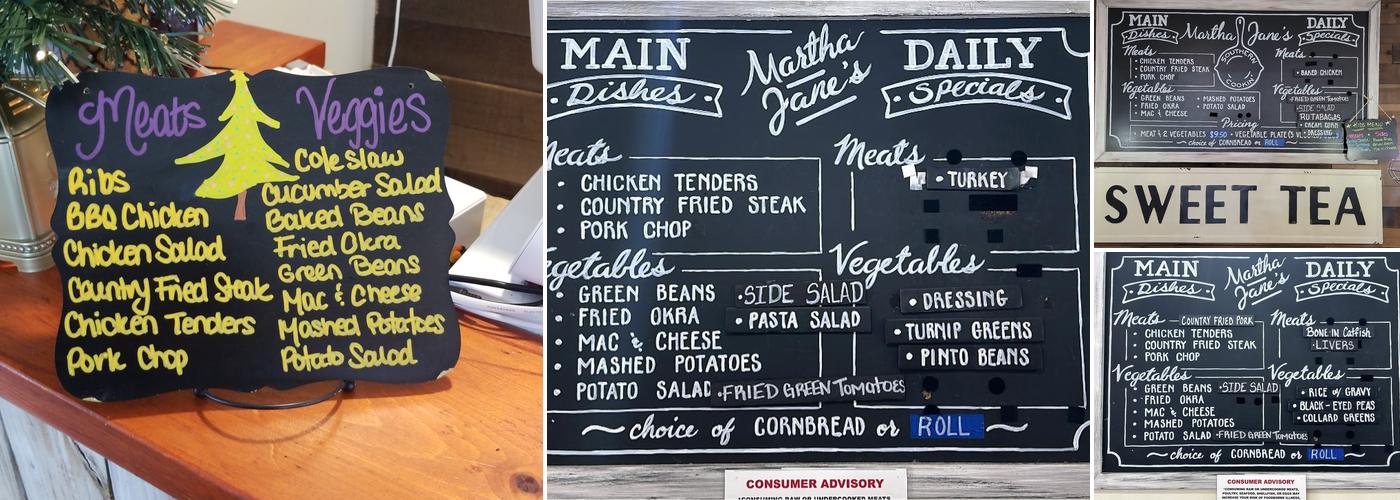 Meats
Ribs
BBQ Chicken
Chicken Salad
Country Fried Steak
Chicken Tenders
Pork Chop
Veggies
Cole slaw
Cucumber Salad
Baked Beans
Fried Okra
Green Beans
Mac & Cheese
Mashed Potatoes
Potato Salad
MAIN
Dishes
Martha
Jane's
DAILY
Specials
Meats
• CHICKEN TENDERS
• COUNTRY FRIED STEAK
• PORK CHOP
Vegetables
• GREEN BEANS
• FRIED OKRA
• MAC & CHEESE
• MASHED POTATOES
• POTATO SALAD
• SIDE SALAD
• PASTA SALAD
• FRIED GREEN TOMATOES
Meats
• TURKEY
Vegetables
• DRESSING
• TURNIP GREENS
• PINTO BEANS
~ choice of CORNBREAD or ROLL ~
CONSUMER ADVISORY
*CONSUMING RAW OR UNDERCOOKED MEATS
MAIN
Dishes
Martha Jane's
SOUTHERN
COOKIN'
DAILY
Specials
Meats
• CHICKEN TENDERS
• COUNTRY FRIED STEAK
• PORK CHOP
Vegetables
• GREEN BEANS
• FRIED OKRA
• MAC & CHEESE
• MASHED POTATOES
• POTATO SALAD
Meats
• BAKED CHICKEN
Vegetables
• FRIED GREEN TOMATOES
• SIDE SALAD
RUTABAGAS
• CREAM CORN
• DRESSING
Pricing
MEAT & 2 VEGETABLES $9.50 • VEGETABLE PLATE
~ choice of CORNBREAD or ROLL
KIDS MENU
SWEET TEA
MAIN
Dishes
Martha
Jane's
DAILY
Specials
Meats
COUNTRY FRIED PORK
• CHICKEN TENDERS
• COUNTRY FRIED STEAK
• PORK CHOP
Vegetables
• GREEN BEANS
• FRIED OKRA
• MAC & CHEESE
• MASHED POTATOES
• POTATO SALAD
• SIDE SALAD
• FRIED GREEN TOMATOES
Meats
BONE IN CATFISH
• LIVERS
Vegetables
• RICE w/ GRAVY
• BLACK-EYED PEAS
• COLLARD GREENS
~ choice of CORNBREAD or ROLL ~
CONSUMER ADVISORY
*CONSUMING RAW OR UNDERCOOKED MEATS,
POULTRY, SEAFOOD, SHELLFISH, OR EGGS MAY
INCREASE YOUR RISK OF FOODBORNE ILLNESS.